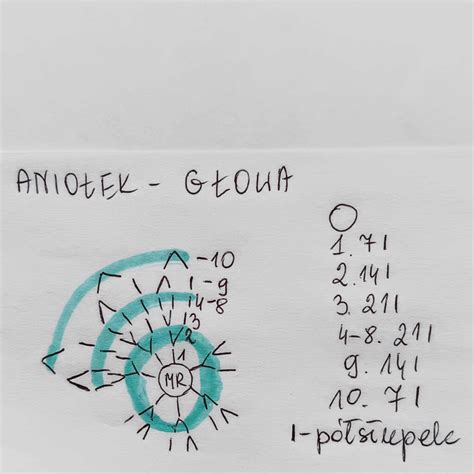 ANIOŁEK - GŁOWA
-10
1-9
4-8
3
2
1
MR
1. 7 I
2. 14 I
3. 21 I
4-8. 21 I
9. 14 I
10. 7 I
I-półsłupek